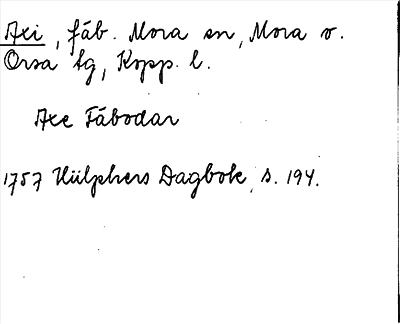 Axi, fäb. Mora sn, Mora o.
Orsa tg, Kopp. l.
Axe Fäbodar
1757 Hülphers Dagbok, s. 194.